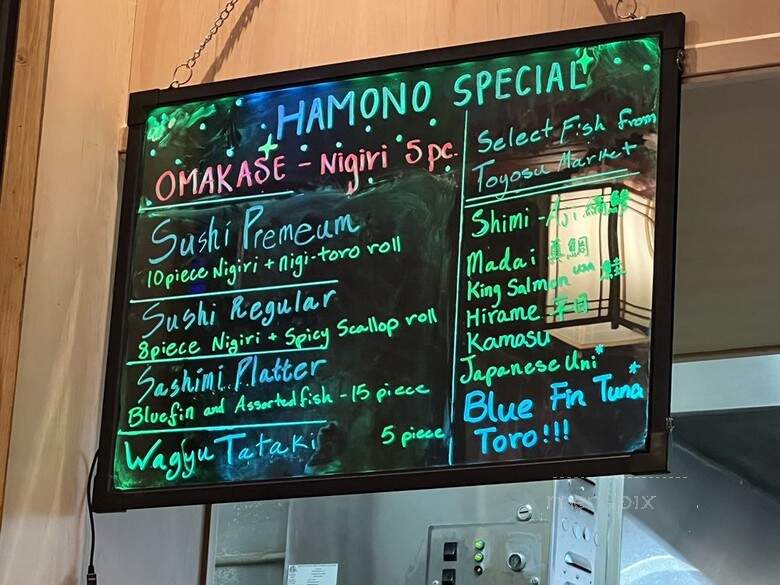 HAMONO SPECIAL
OMAKASE - Nigiri 5 pc.
Sushi Premeum
10 piece Nigiri + nigi-toro roll
Sushi Regular
8 piece Nigiri + Spicy Scallop roll
Sashimi Platter
Bluefin and Assorted fish - 15 piece
Wagyu Tataki 5 piece
Select Fish from
Toyosu Market
Shimi - Aji 縞鯵
Madai 真鯛
King Salmon USA 鮭
Hirame 平目
Kamasu
Japanese Uni*
Blue Fin Tuna*
Toro!!!